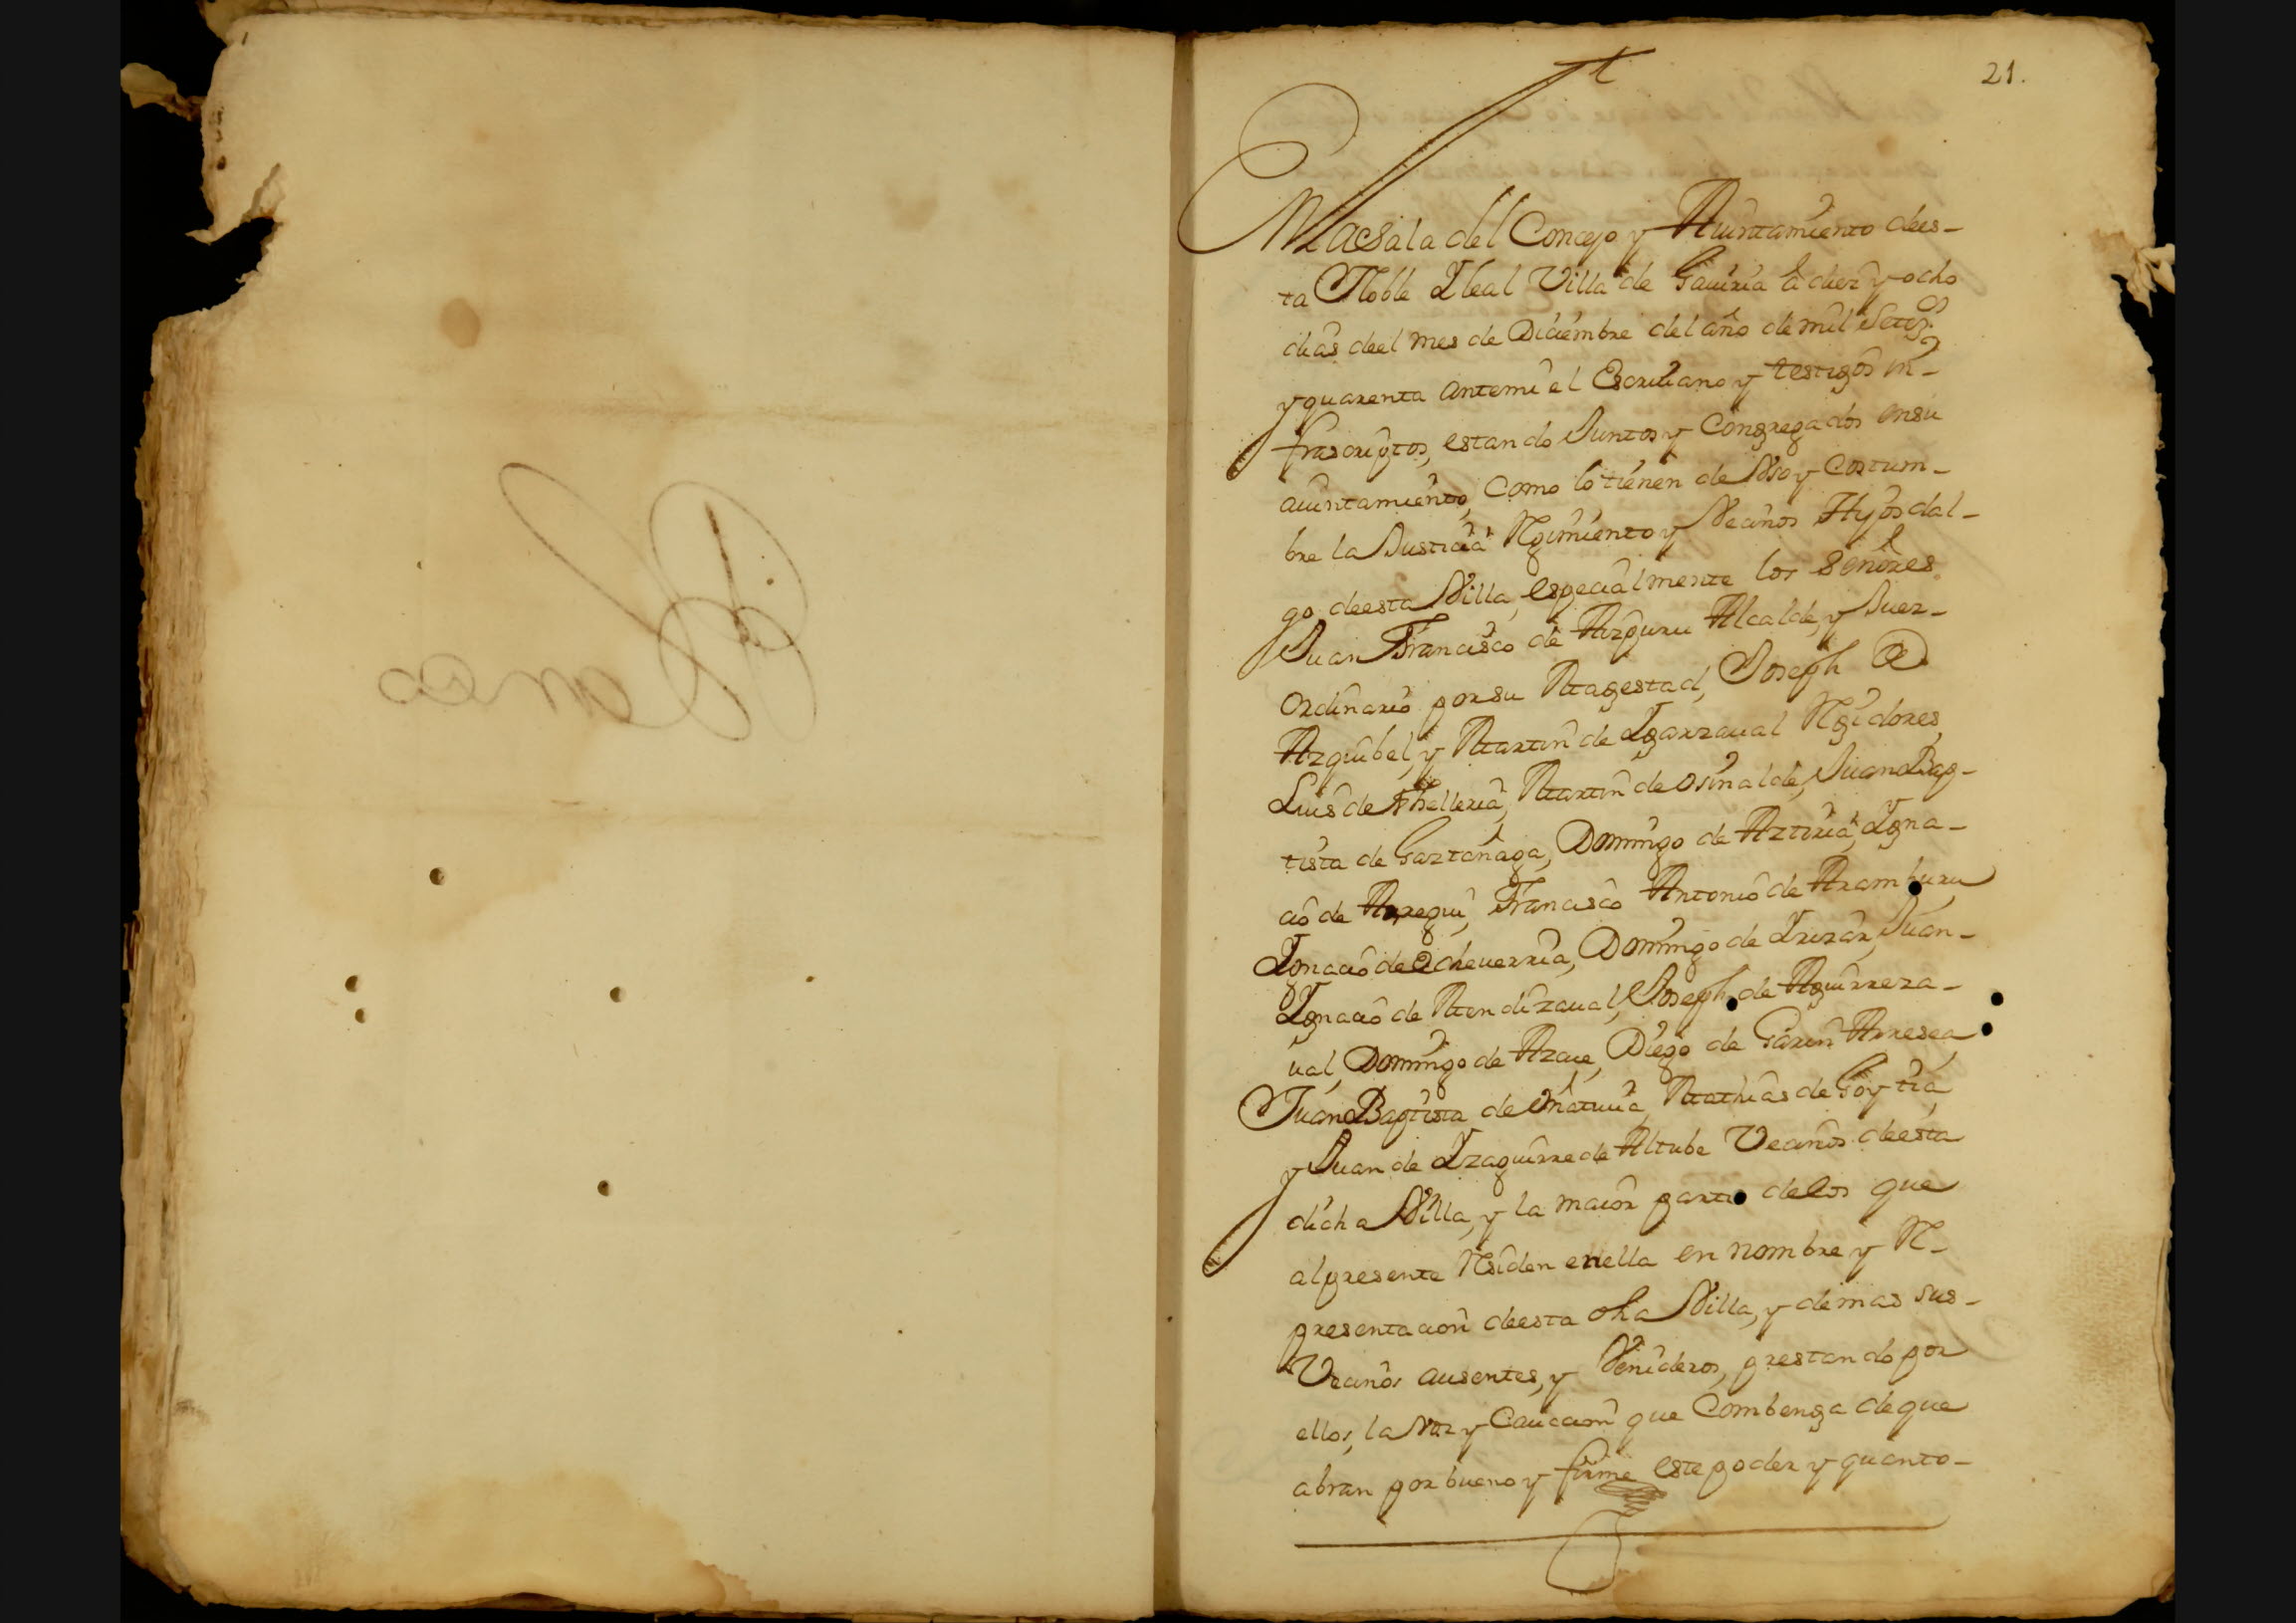 21.
En la Sala del Concejo y Aiuntamiento dees-
ta Noble Y leal Villa de Gauiria à diez y ocho
dias deel mes de Diciembre del año de mil Setez.os
y quarenta antemi el Escriuano y testigos in-
frascriptos, estando Juntos y Congregados ensu
aiuntamiento, Como lo tienen de Vso y Costum-
bre la Justicia Rejimiento y Vecinos Hijosdal-
go deesta Villa, especialmente los Señores
Juan Francisco de Aizpuru Alcalde, y Juez-
Ordinario por su Magestad, Joseph de
Azguibel, y Martin de Ygarzaual Rejidores,
Luis de Thelleria, Martin de Osinalde, Juan Bap-
tista de Gaztañaga, Domingo de Aztiria, Ygna-
cio de Arregui, Francisco Antonio de Aramburu
Ygnacio de Echeuerria, Domingo de Yrizar, Juan-
Ygnacio de Mendizaual, Joseph de Aguirreza-
ual, Domingo de Azcue, Diego de Garin Arresea
Juan Baptista de Oñatiuia, Mathias de Goytia,
y Juan de Yzaguirre de Altube Vecinos deesta
dicha Villa, y la maior parte delos que
alpresente Residen enella en nombre y Re-
presentacion deesta dha Villa, y demas sus-
Vecinos ausentes, y Venideros, prestando por
ellos, la Voz y Caucion que Combenga deque
abran por bueno y firme este poder y quanto-